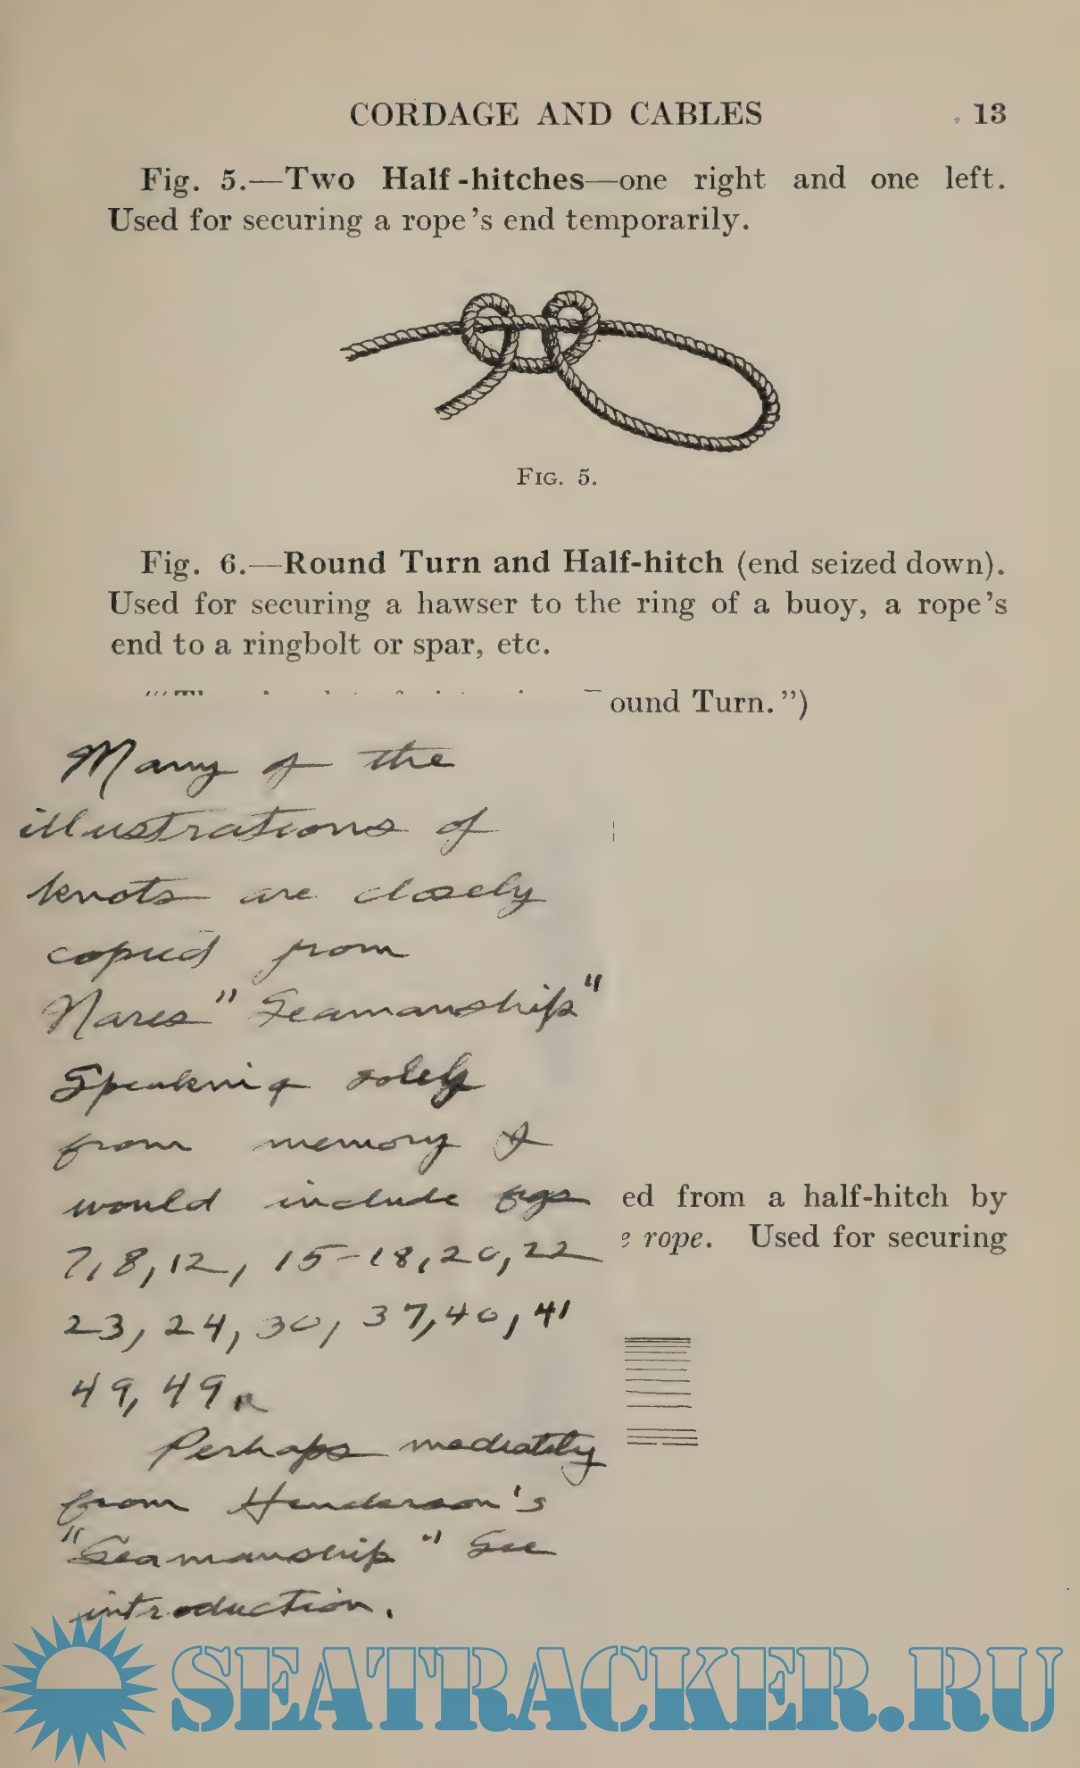 CORDAGE AND CABLES 13
Fig. 5.—Two Half-hitches—one right and one left.
Used for securing a rope's end temporarily.
FIG. 5.
Fig. 6.—Round Turn and Half-hitch (end seized down).
Used for securing a hawser to the ring of a buoy, a rope's
end to a ringbolt or spar, etc.
ound Turn.")
Many of the
illustrations of
knots are closely
copied from
Nares "Seamanship"
Speaking solely
from memory I
would include figs
7, 8, 12, 15-18, 20, 22
ed from a half-hitch by
rope. Used for securing
23, 24, 30, 37, 40, 41
49, 49a
Perhaps mediately
from Henderson's
"Seamanship" See
introduction.
SEATRACKER.RU